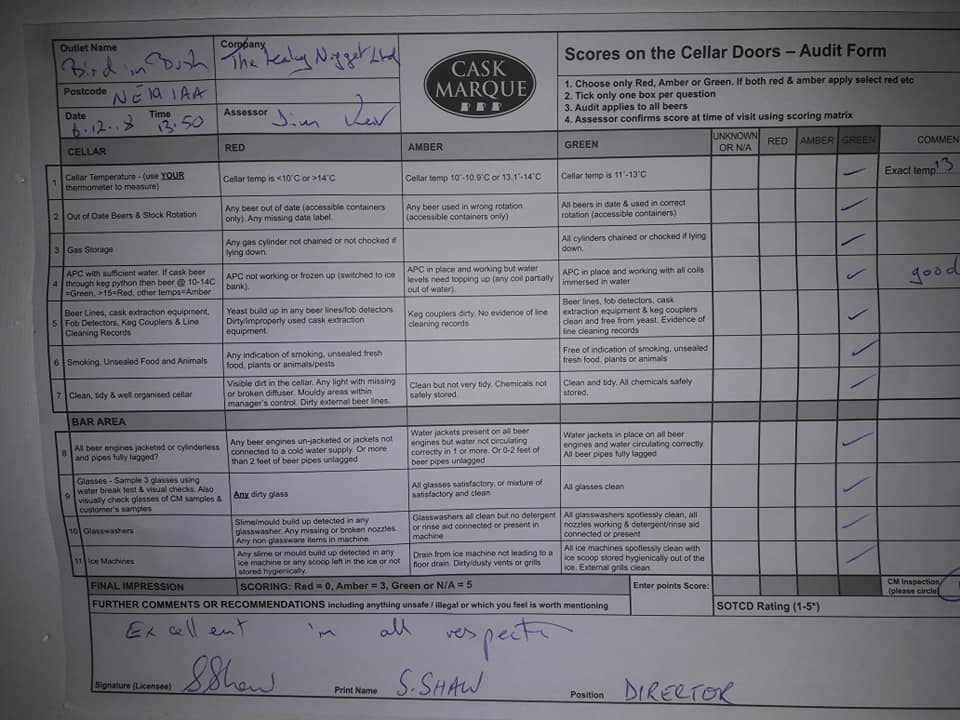 Outlet Name Bird in Bush
Company The Leaky Nugget Ltd
Postcode NE19 1AA
Date 6.12.18 Time 13.50
Assessor Jim
CASK
MARQUE
Scores on the Cellar Doors – Audit Form
1. Choose only Red, Amber or Green. If both red & amber apply select red etc
2. Tick only one box per question
3. Audit applies to all beers
4. Assessor confirms score at time of visit using scoring matrix
CELLAR RED AMBER GREEN UNKNOWN OR N/A RED AMBER GREEN COMMEN
1 Cellar Temperature - (use YOUR thermometer to measure) Cellar temp is <10°C or >14°C Cellar temp 10°-10.9°C or 13.1°-14°C Cellar temp is 11°-13°C Exact temp 13
2 Out of Date Beers & Stock Rotation Any beer out of date (accessible containers only). Any missing date label. Any beer used in wrong rotation (accessible containers only) All beers in date & used in correct rotation (accessible containers)
3 Gas Storage Any gas cylinder not chained or not chocked if lying down. All cylinders chained or chocked if lying down.
4 APC with sufficient water. If cask beer through keg python then beer @ 10-14C =Green, >15=Red, other temps=Amber APC not working or frozen up (switched to ice bank). APC in place and working but water levels need topping up (any coil partially out of water). APC in place and working with all coils immersed in water good
5 Beer Lines, cask extraction equipment, Fob Detectors, Keg Couplers & Line Cleaning Records Yeast build up in any beer lines/fob detectors Dirty/improperly used cask extraction equipment. Keg couplers dirty. No evidence of line cleaning records Beer lines, fob detectors, cask extraction equipment & keg couplers clean and free from yeast. Evidence of line cleaning records
6 Smoking, Unsealed Food and Animals Any indication of smoking, unsealed fresh food, plants or animals/pests Free of indication of smoking, unsealed fresh food, plants or animals
7 Clean, tidy & well organised cellar Visible dirt in the cellar. Any light with missing or broken diffuser. Mouldy areas within manager's control. Dirty external beer lines. Clean but not very tidy. Chemicals not safely stored. Clean and tidy. All chemicals safely stored.
BAR AREA
8 All beer engines jacketed or cylinderless and pipes fully lagged? Any beer engines un-jacketed or jackets not connected to a cold water supply. Or more than 2 feet of beer pipes unlagged Water jackets present on all beer engines but water not circulating correctly in 1 or more. Or 0-2 feet of beer pipes unlagged Water jackets in place on all beer engines and water circulating correctly. All beer pipes fully lagged
9 Glasses - Sample 3 glasses using water break test & visual checks. Also visually check glasses of CM samples & customer's samples Any dirty glass All glasses satisfactory, or mixture of satisfactory and clean All glasses clean
10 Glasswashers Slime/mould build up detected in any glasswasher. Any missing or broken nozzles. Any non glassware items in machine. Glasswashers all clean but no detergent or rinse aid connected or present in machine All glasswashers spotlessly clean, all nozzles working & detergent/rinse aid connected or present
11 Ice Machines Any slime or mould build up detected in any ice machine or any scoop left in the ice or not stored hygienically. Drain from ice machine not leading to a floor drain. Dirty/dusty vents or grills All ice machines spotlessly clean with ice scoop stored hygienically out of the ice. External grills clean.
FINAL IMPRESSION SCORING: Red = 0, Amber = 3, Green or N/A = 5 Enter points Score: CM Inspection (please circle)
FURTHER COMMENTS OR RECOMMENDATIONS including anything unsafe / illegal or which you feel is worth mentioning SOTCD Rating (1-5*)
Excellent in all respects
Signature (Licensee) SShaw Print Name S. SHAW Position DIRECTOR